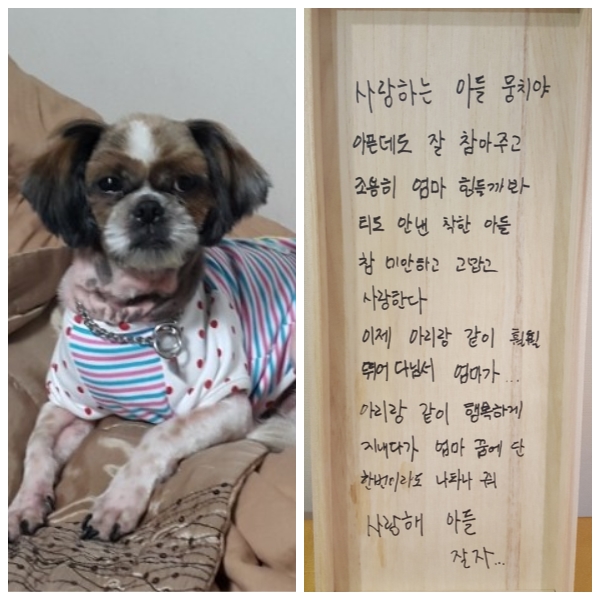 사랑하는 아들 뭉치야
아픈데도 잘 참아주고
조용히 엄마 힘들까봐
티도 안낸 착한 아들
참 미안하고 고맙고
사랑한다
이제 아리랑 같이 훨훨
뛰어 다님서 엄마가...
아리랑 같이 행복하게
지내다가 엄마 꿈에 단
한번이라도 나타나 줘
사랑해 아들
잘자...